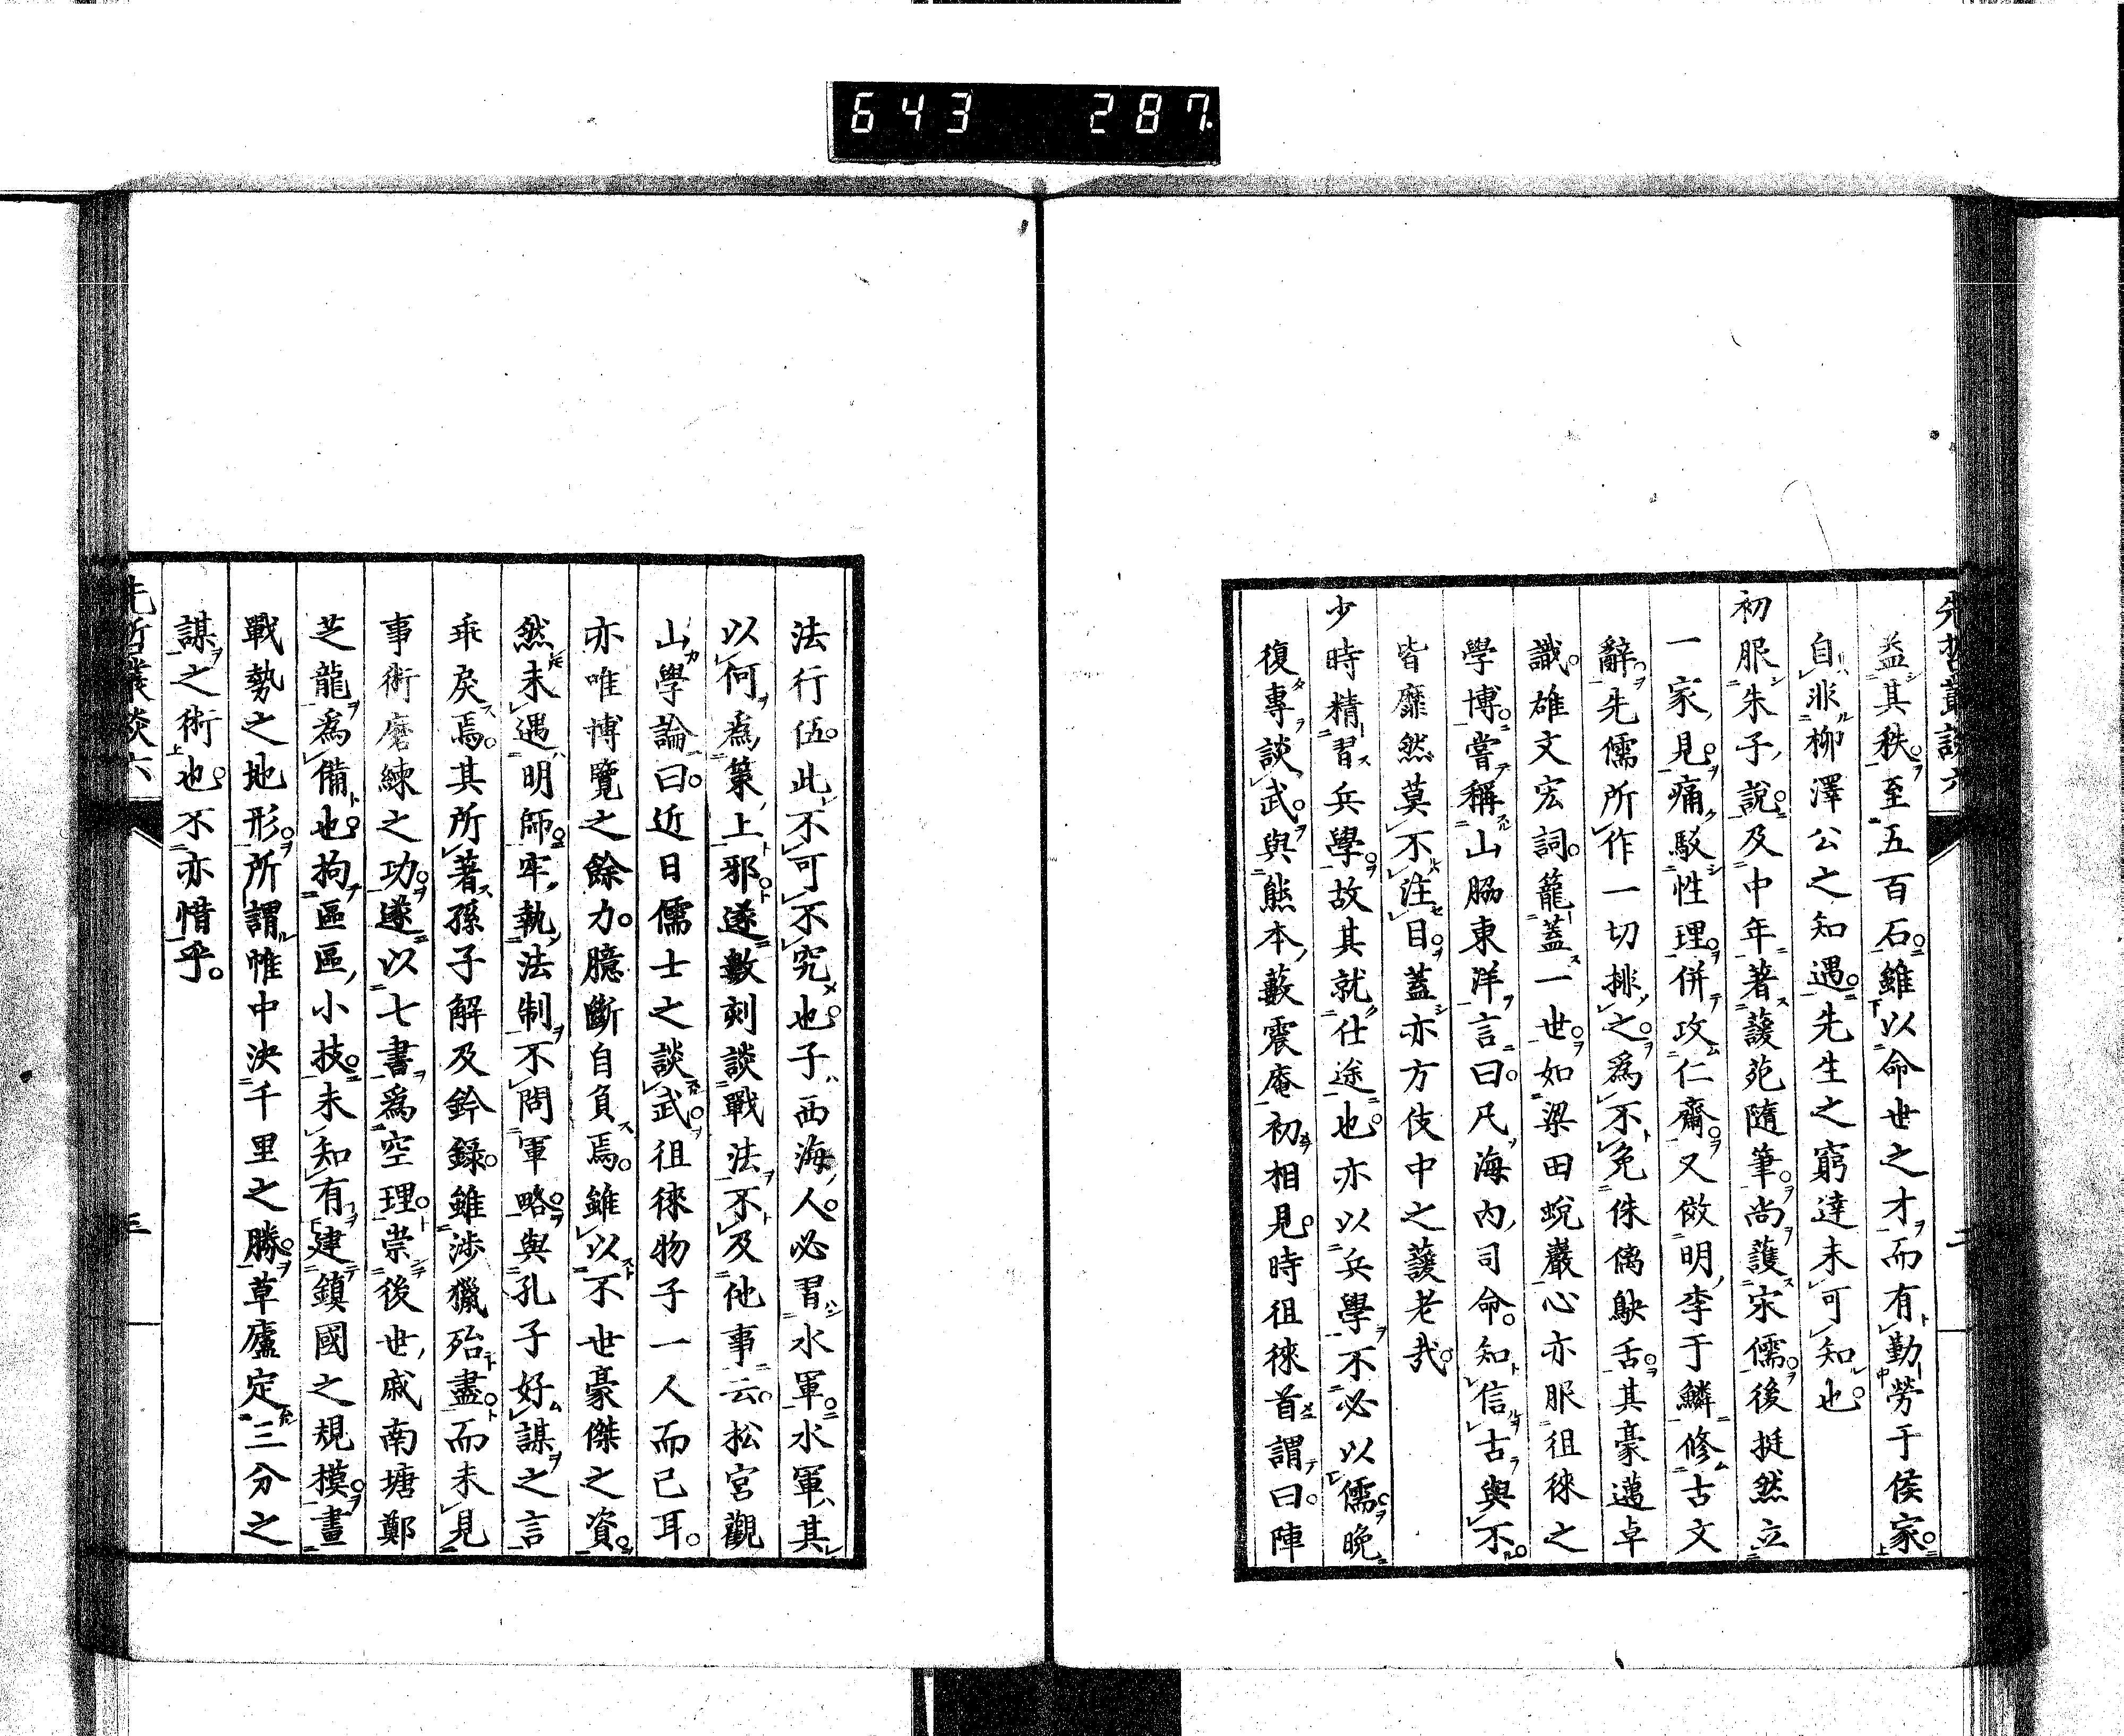 643 287
先哲叢談六 二
益其秩至五百石雖以命世之才而有勤勞于侯家
自非柳澤公之知遇先生之窮達未可知也
初服朱子說及中年著蘐苑隨筆尚護宋儒後挺然立
一家見痛駁性理併攻仁齋又倣明李于鱗修古文
辭先儒所作一切排之爲不免侏𠌯鴃舌其豪邁卓
識雄文宏詞籠蓋一世如梁田蛻巖心亦服徂徠之
學博嘗稱山腦東洋言曰尺海內司命知信古與不
皆靡然莫不注目蓋亦方伎中之蘐老哉
少時精習兵學故其就仕途也亦以兵學不必以儒晚
復專談武與熊本藪震庵初相見時徂徠首謂曰陣
法行伍此不可不究也子西海人必習水軍水軍其
以何爲策上邪遂數刻談戰法不及他事云松宮觀
山學論曰近日儒士之談武徂徠物子一人而已耳
亦唯博覽之餘力臆斷自負焉雖以不世豪傑之資
然未遇明師牢執法制不問軍略與孔子好謀之言
乖戾焉其所著孫子解及鈐錄雖涉獵殆盡而未見
事術磨練之功遂以七書爲空理崇後世戚南塘鄭
芝龍爲備也拘區區小技未知有建鎮國之規模畫
戰勢之地形所謂帷中決千里之勝草廬定三分之
謀之術也不亦惜乎
先哲叢談六 三